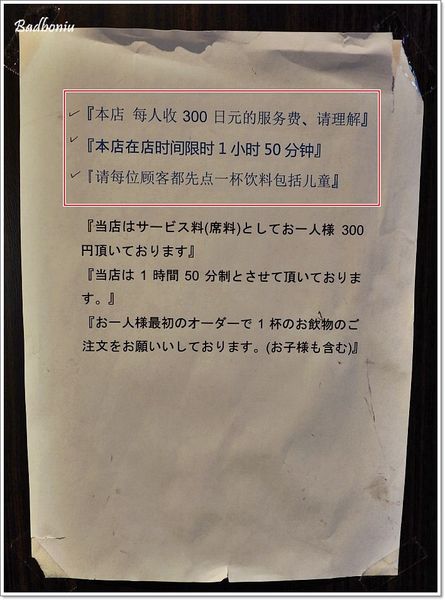 Badboniu
『本店 每人收 300 日元的服务费、请理解』
『本店在店时间限时 1 小时 50 分钟』
『请每位顾客都先点一杯饮料包括儿童』
『当店はサービス料(席料)としてお一人様 300
円頂いております』
『当店は 1 時間 50 分制とさせて頂いておりま
す。』
『お一人様最初のオーダーで 1 杯のお飲物のご
注文をお願いいしております。(お子様も含む)』